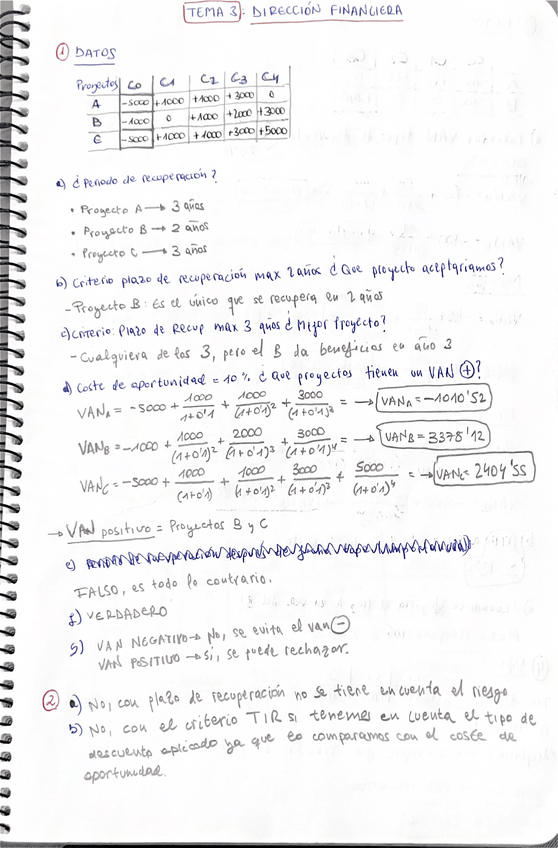 TEMA 3: DIRECCIÓN FINANCIERA
① DATOS
Proyectos C0 C1 C2 C3 C4
A -5000 +1000 +1000 +3000 0
B -1000 0 +1000 +2000 +3000
C -5000 +1000 +1000 +3000 +5000
a) ¿Periodo de recuperación?
• Proyecto A → 3 años
• Proyecto B → 2 años
• Proyecto C → 3 años
b) Criterio plazo de recuperación max 2 años ¿Que proyecto aceptaríamos?
- Proyecto B: Es el único que se recupera en 2 años
c) Criterio: Plazo de Recup max 3 años ¿Mejor Proyecto?
- Cualquiera de los 3, pero el B da beneficios en año 3
d) Coste de aportunidad = 10% ¿Que proyectos tienen un VAN ⊕?
VAN_A = -5000 + 1000/(1+0'1) + 1000/(1+0'1)² + 3000/(1+0'1)³ = → VAN_A = -1010'52
VAN_B = -1000 + 1000/(1+0'1)² + 2000/(1+0'1)³ + 3000/(1+0'1)⁴ = → VAN_B = 3378'12
VAN_C = -5000 + 1000/(1+0'1) + 1000/(1+0'1)² + 3000/(1+0'1)³ + 5000/(1+0'1)⁴ = → VAN_C = 2404'55
→ VAN positivo = Proyectos B y C
e)
FALSO, es todo lo contrario.
f) VERDADERO
g) VAN NEGATIVO → No, se evita el van ⊖
VAN POSITIVO → sí, se puede rechazar.
② a) No, con plazo de recuperación no se tiene en cuenta el riesgo
b) No, con el criterio TIR si tenemos en cuenta el tipo de
descuento aplicado ya que lo comparamos con el coste de
oportunidad.